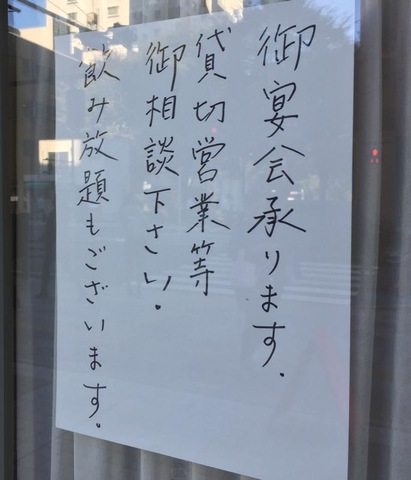 御宴会承ります.
貸切営業等
御相談下さい.
飲み放題もございます.